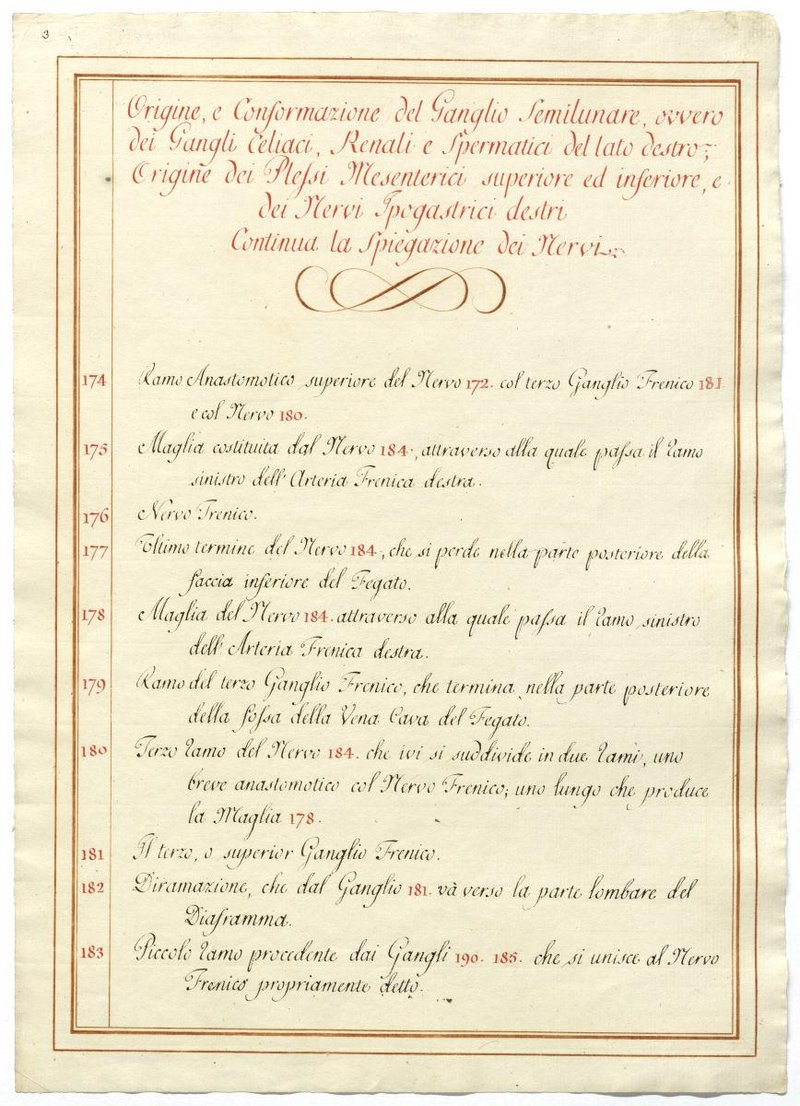 3
Origine, e Conformazione del Ganglio Semilunare, ovvero
dei Gangli Celiaci, Renali e Spermatici del lato destro;
Origine dei Plessi Mesenterici superiore ed inferiore, e
dei Nervi Ipogastrici destri
Continua la Spiegazione dei Nervi
174 Ramo Anastomotico superiore del Nervo 172. col terzo Ganglio Frenico 181
e col Nervo 180.
175 Maglia costituita dal Nervo 184., attraverso alla quale passa il ramo
sinistro dell'Arteria Frenica destra.
176 Nervo Frenico.
177 Ultimo termine del Nervo 184., che si perde nella parte posteriore della
faccia inferiore del Fegato.
178 Maglia del Nervo 184. attraverso alla quale passa il ramo sinistro
dell'Arteria Frenica destra.
179 Ramo del terzo Ganglio Frenico, che termina nella parte posteriore
della fossa della Vena Cava del Fegato.
180 Terzo ramo del Nervo 184. che ivi si suddivide in due rami, uno
breve anastomotico col Nervo Frenico; uno lungo che produce
la Maglia 178.
181 Il terzo, o superior Ganglio Frenico.
182 Diramazione, che dal Ganglio 181. và verso la parte lombare del
Diaframma.
183 Piccolo ramo procedente dai Gangli 190. 185. che si unisce al Nervo
Frenico propriamente detto.